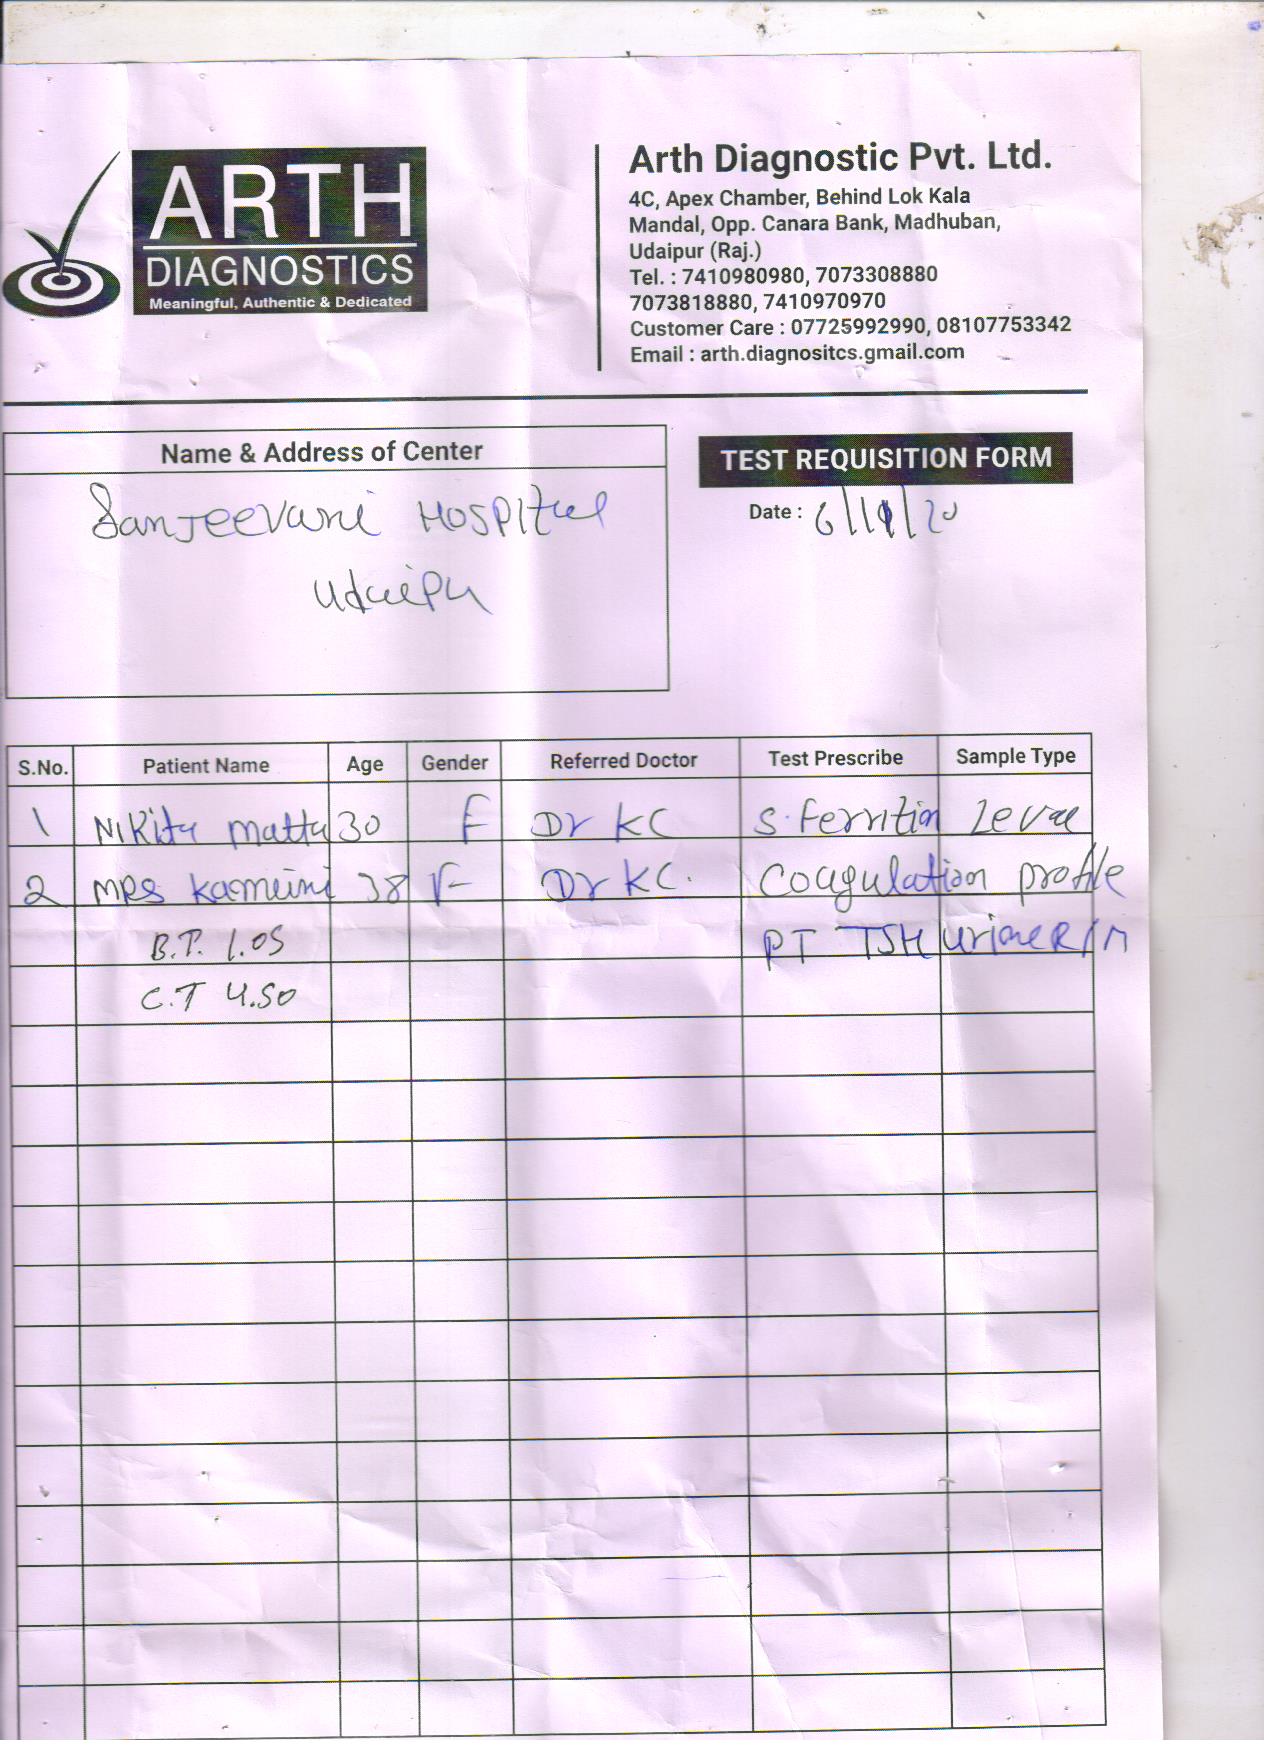 ARTH
DIAGNOSTICS
Meaningful, Authentic & Dedicated
Arth Diagnostic Pvt. Ltd.
4C, Apex Chamber, Behind Lok Kala
Mandal, Opp. Canara Bank, Madhuban,
Udaipur (Raj.)
Tel. : 7410980980, 7073308880
7073818880, 7410970970
Customer Care : 07725992990, 08107753342
Email : arth.diagnositcs.gmail.com
Name & Address of Center
Sanjeevani Hospital
Udaipu
TEST REQUISITION FORM
Date : 6/11/20
S.No. Patient Name Age Gender Referred Doctor Test Prescribe Sample Type
1 Nikita matta 30 F Dr KC S. Ferrition Leval
2 MRS Kameini 38 F Dr KC. Coagulation profile
B.T. 1.05 PT TSH Urine R/M
C.T 4.50